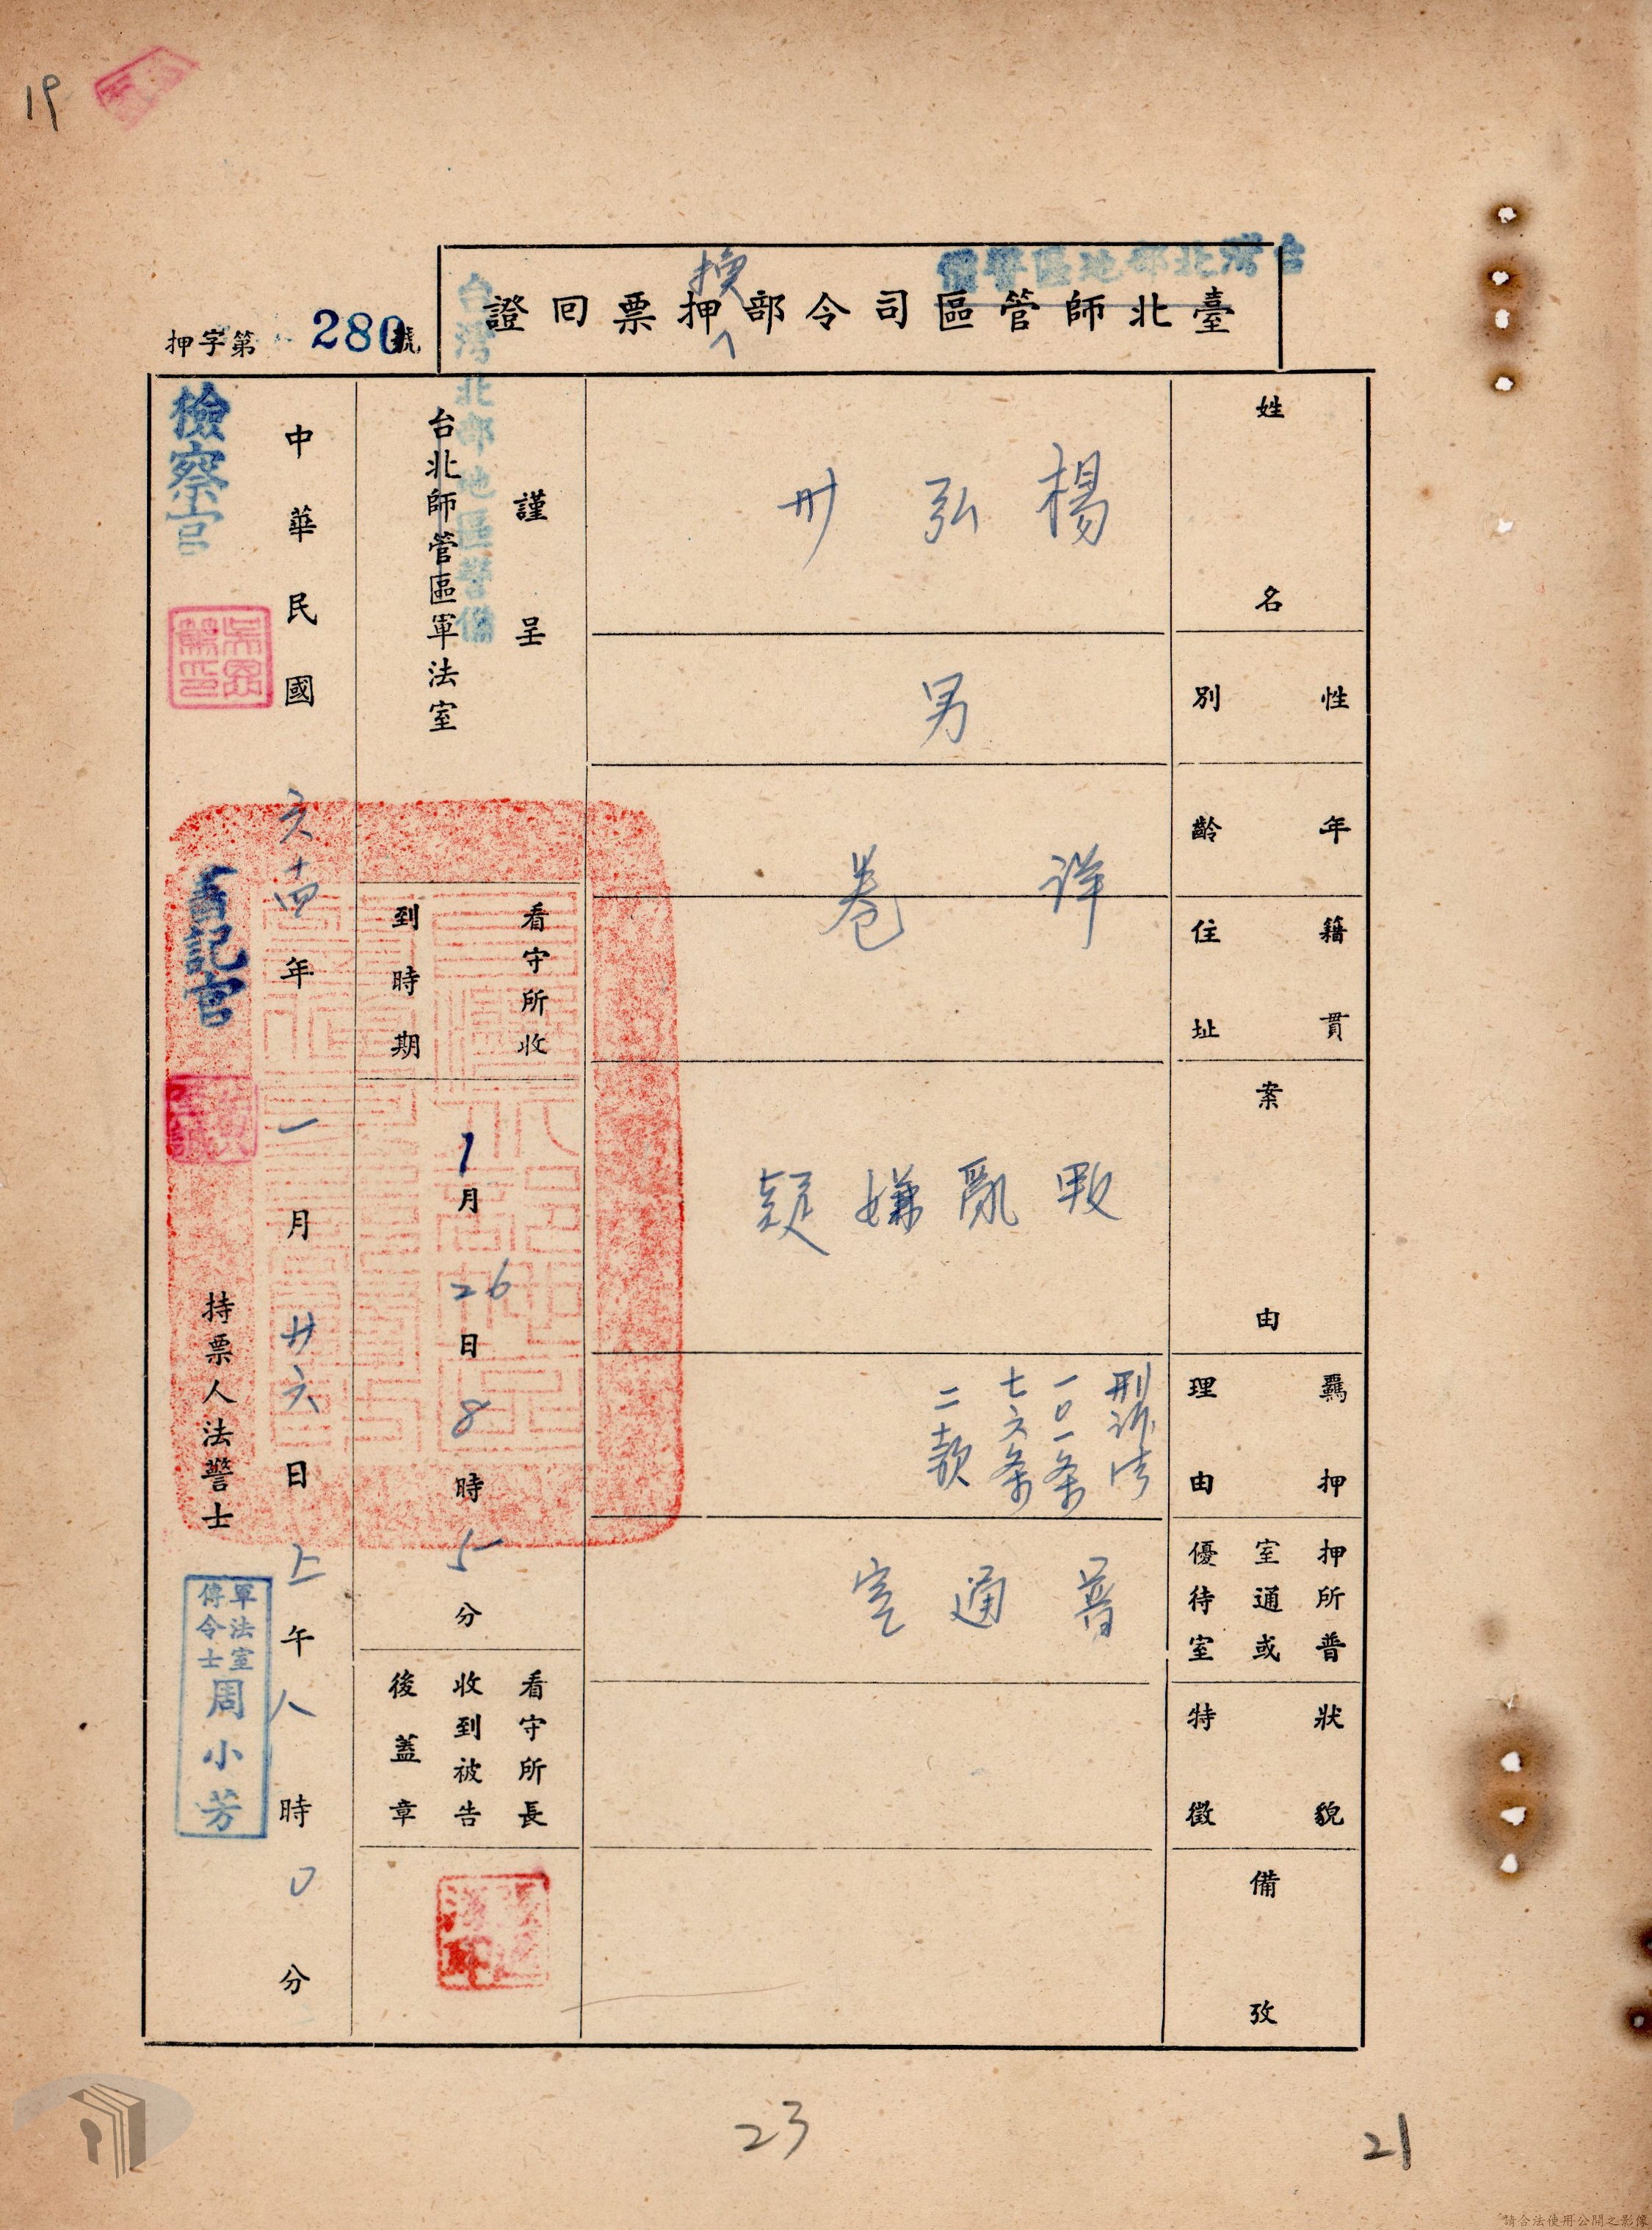 19
台灣北部地區警備
臺北師管區司令部押票回證
換
押字第280號
姓名
楊弘卅
性別
男
年齡
籍貫住址
詳卷
案由
叛亂嫌疑
羈押理由
刑訴法
一〇一条
七六条
二款
押所普通室或優待室
普通室
狀貌特徵
備攷
謹呈
台灣北部地區警備
台北師管區軍法室
看守所收到時期
1月26日8時5分
看守所長收到被告後蓋章
中華民國六十四年一月廿六日上午八時0分
檢察官
書記官
持票人法警士
軍法室傳令士
周小芳
23
21
請合法使用公開之影像